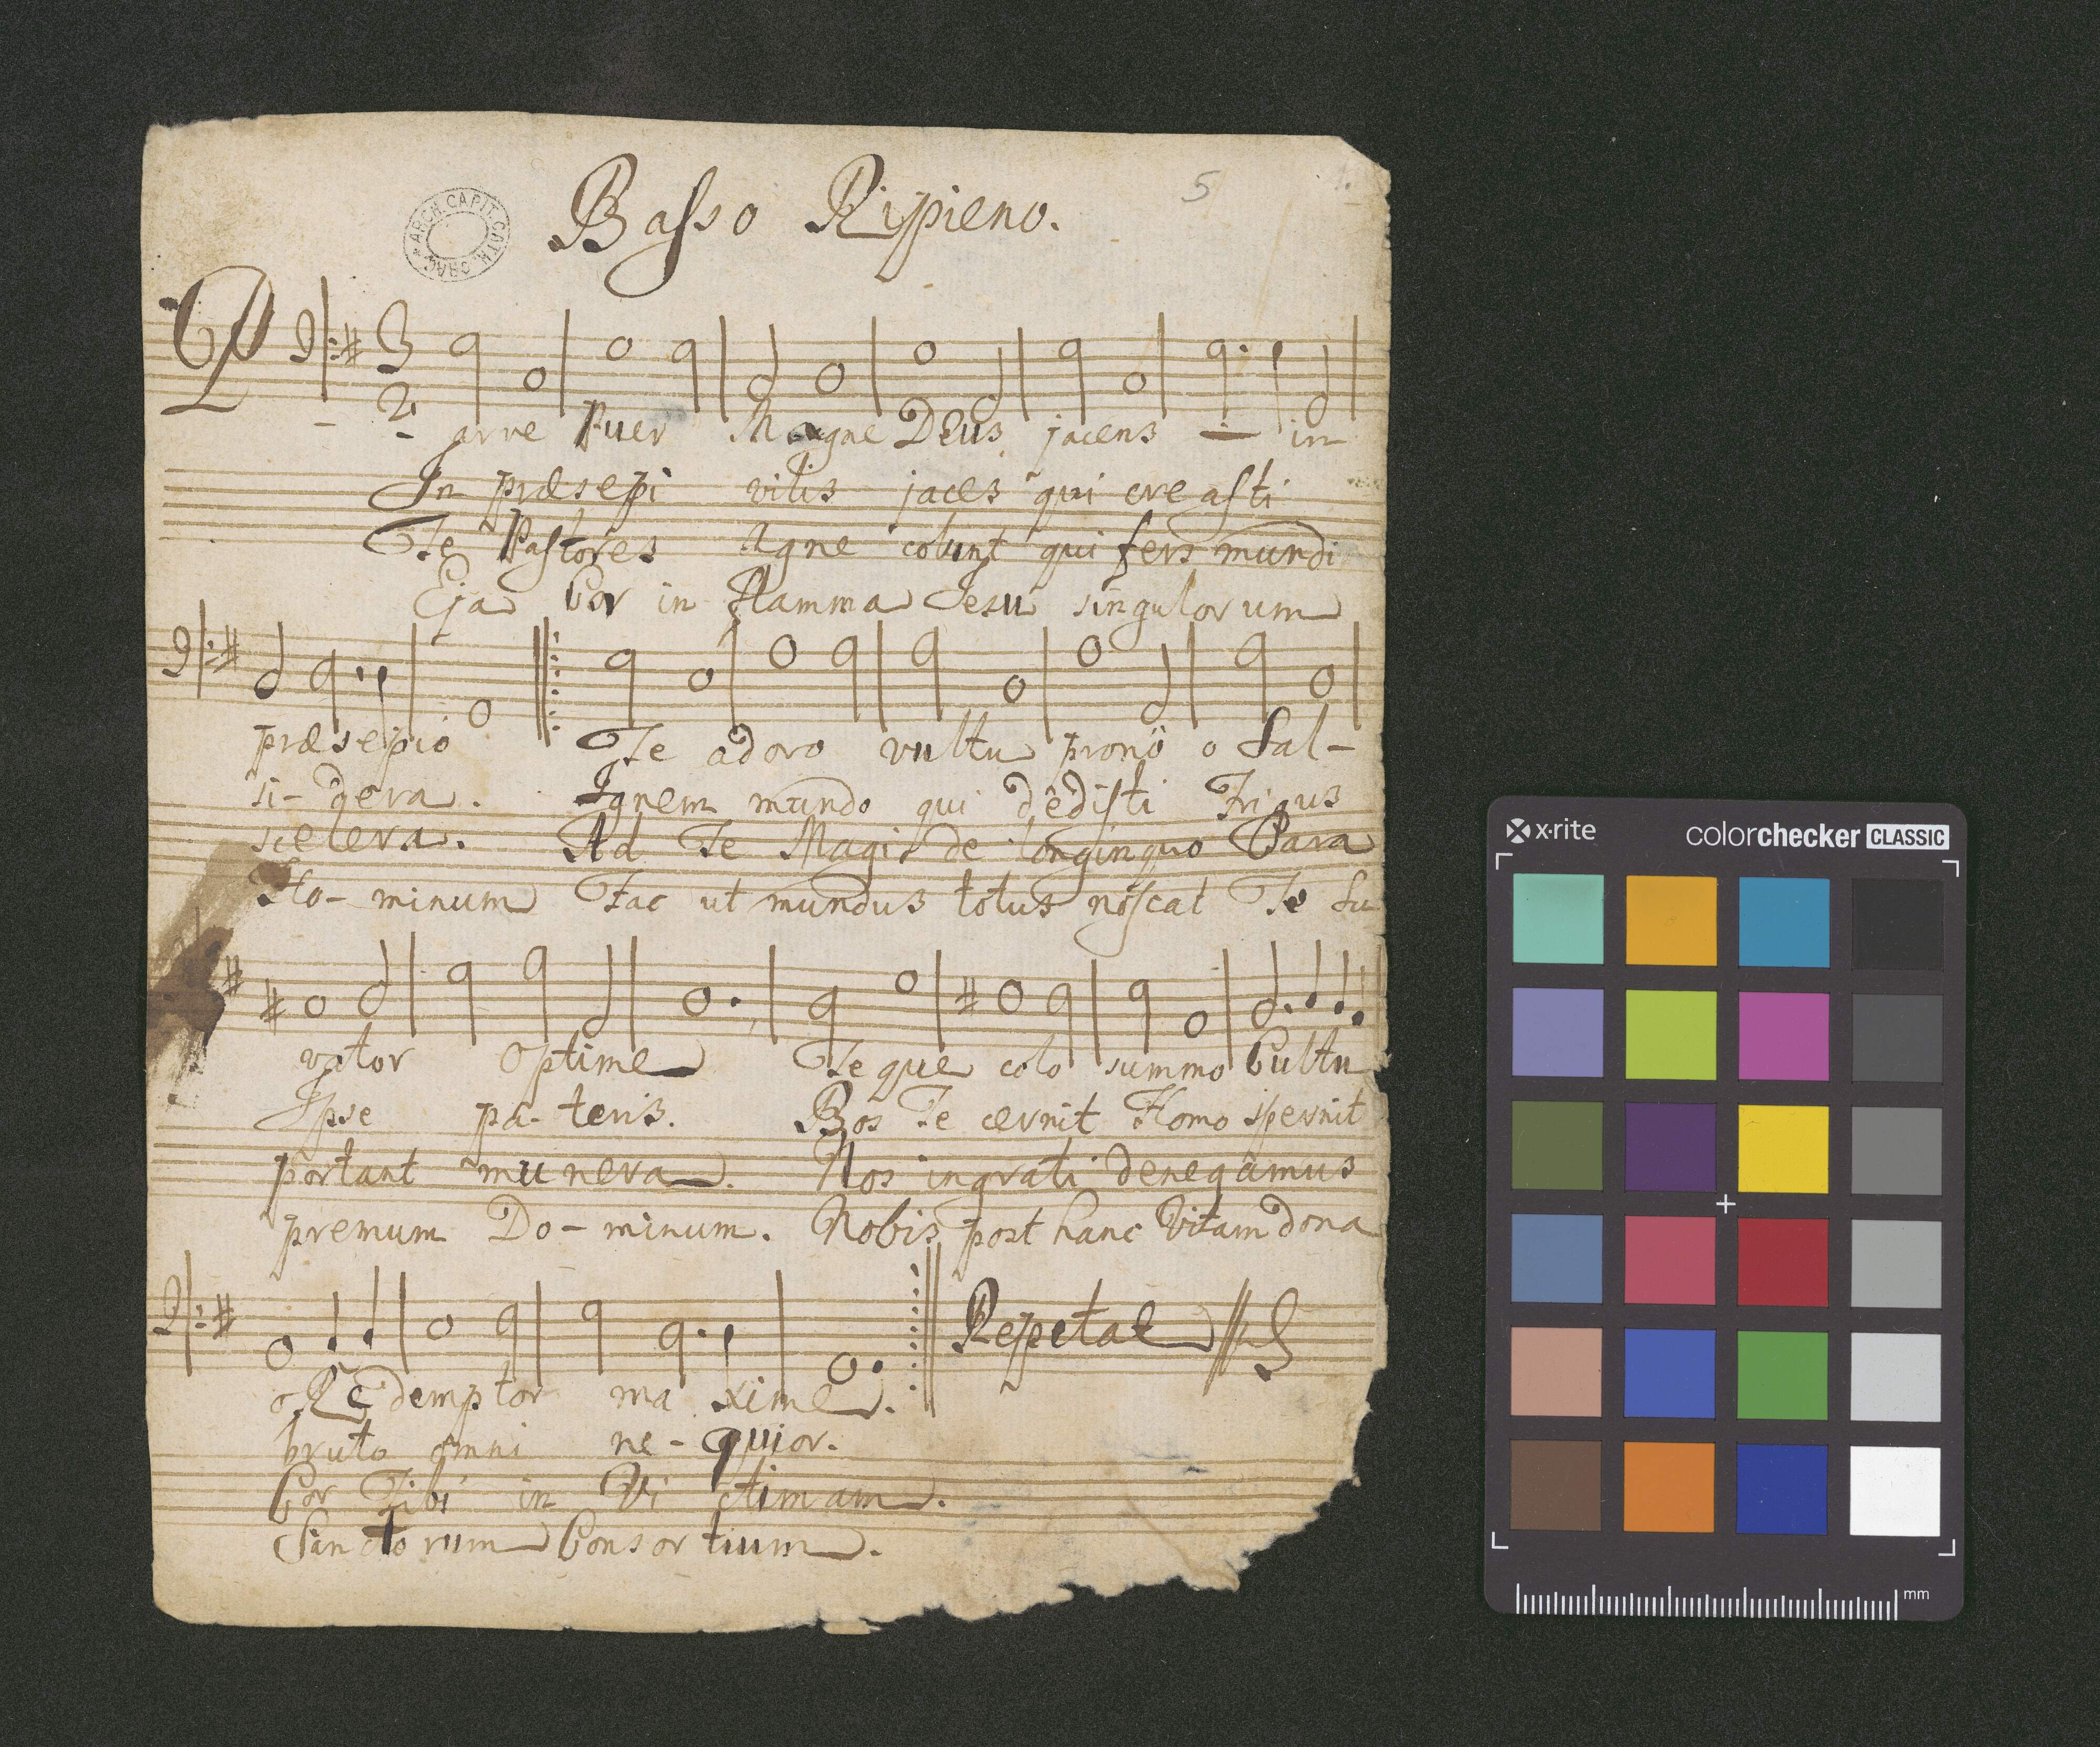 Basso Ripieno.
5
ARCH. CAPIT. CATH. CRAC.
Parve Puer Magne Deus jacens — in
In præsepi vilis jaces qui creasti
Te Pastores Agne colunt qui fers mundi
Eja Cor in flamma Jesu singulorum
præsepio Te adoro vultu prono o Sal-
si-dera. Ignem mundo qui dedisti Frigus
scelera. Ad Te Magis de longinquo Para
Ho-minum Fac ut mundus totus noscat Te Su
vator Optime Te que colo summo Cultu
Ipse pa-teris. Bos Te cernit Homo spernit
portant munera. Nos ingrati denegamus
premum Do-minum. Nobis post hanc Vitam dona
o Redemptor ma xime. Repetat
bruto omni ne-quior.
Cor Tibi in Vi ctimam.
Sanctorum Consortium.
x-rite
colorchecker CLASSIC
mm